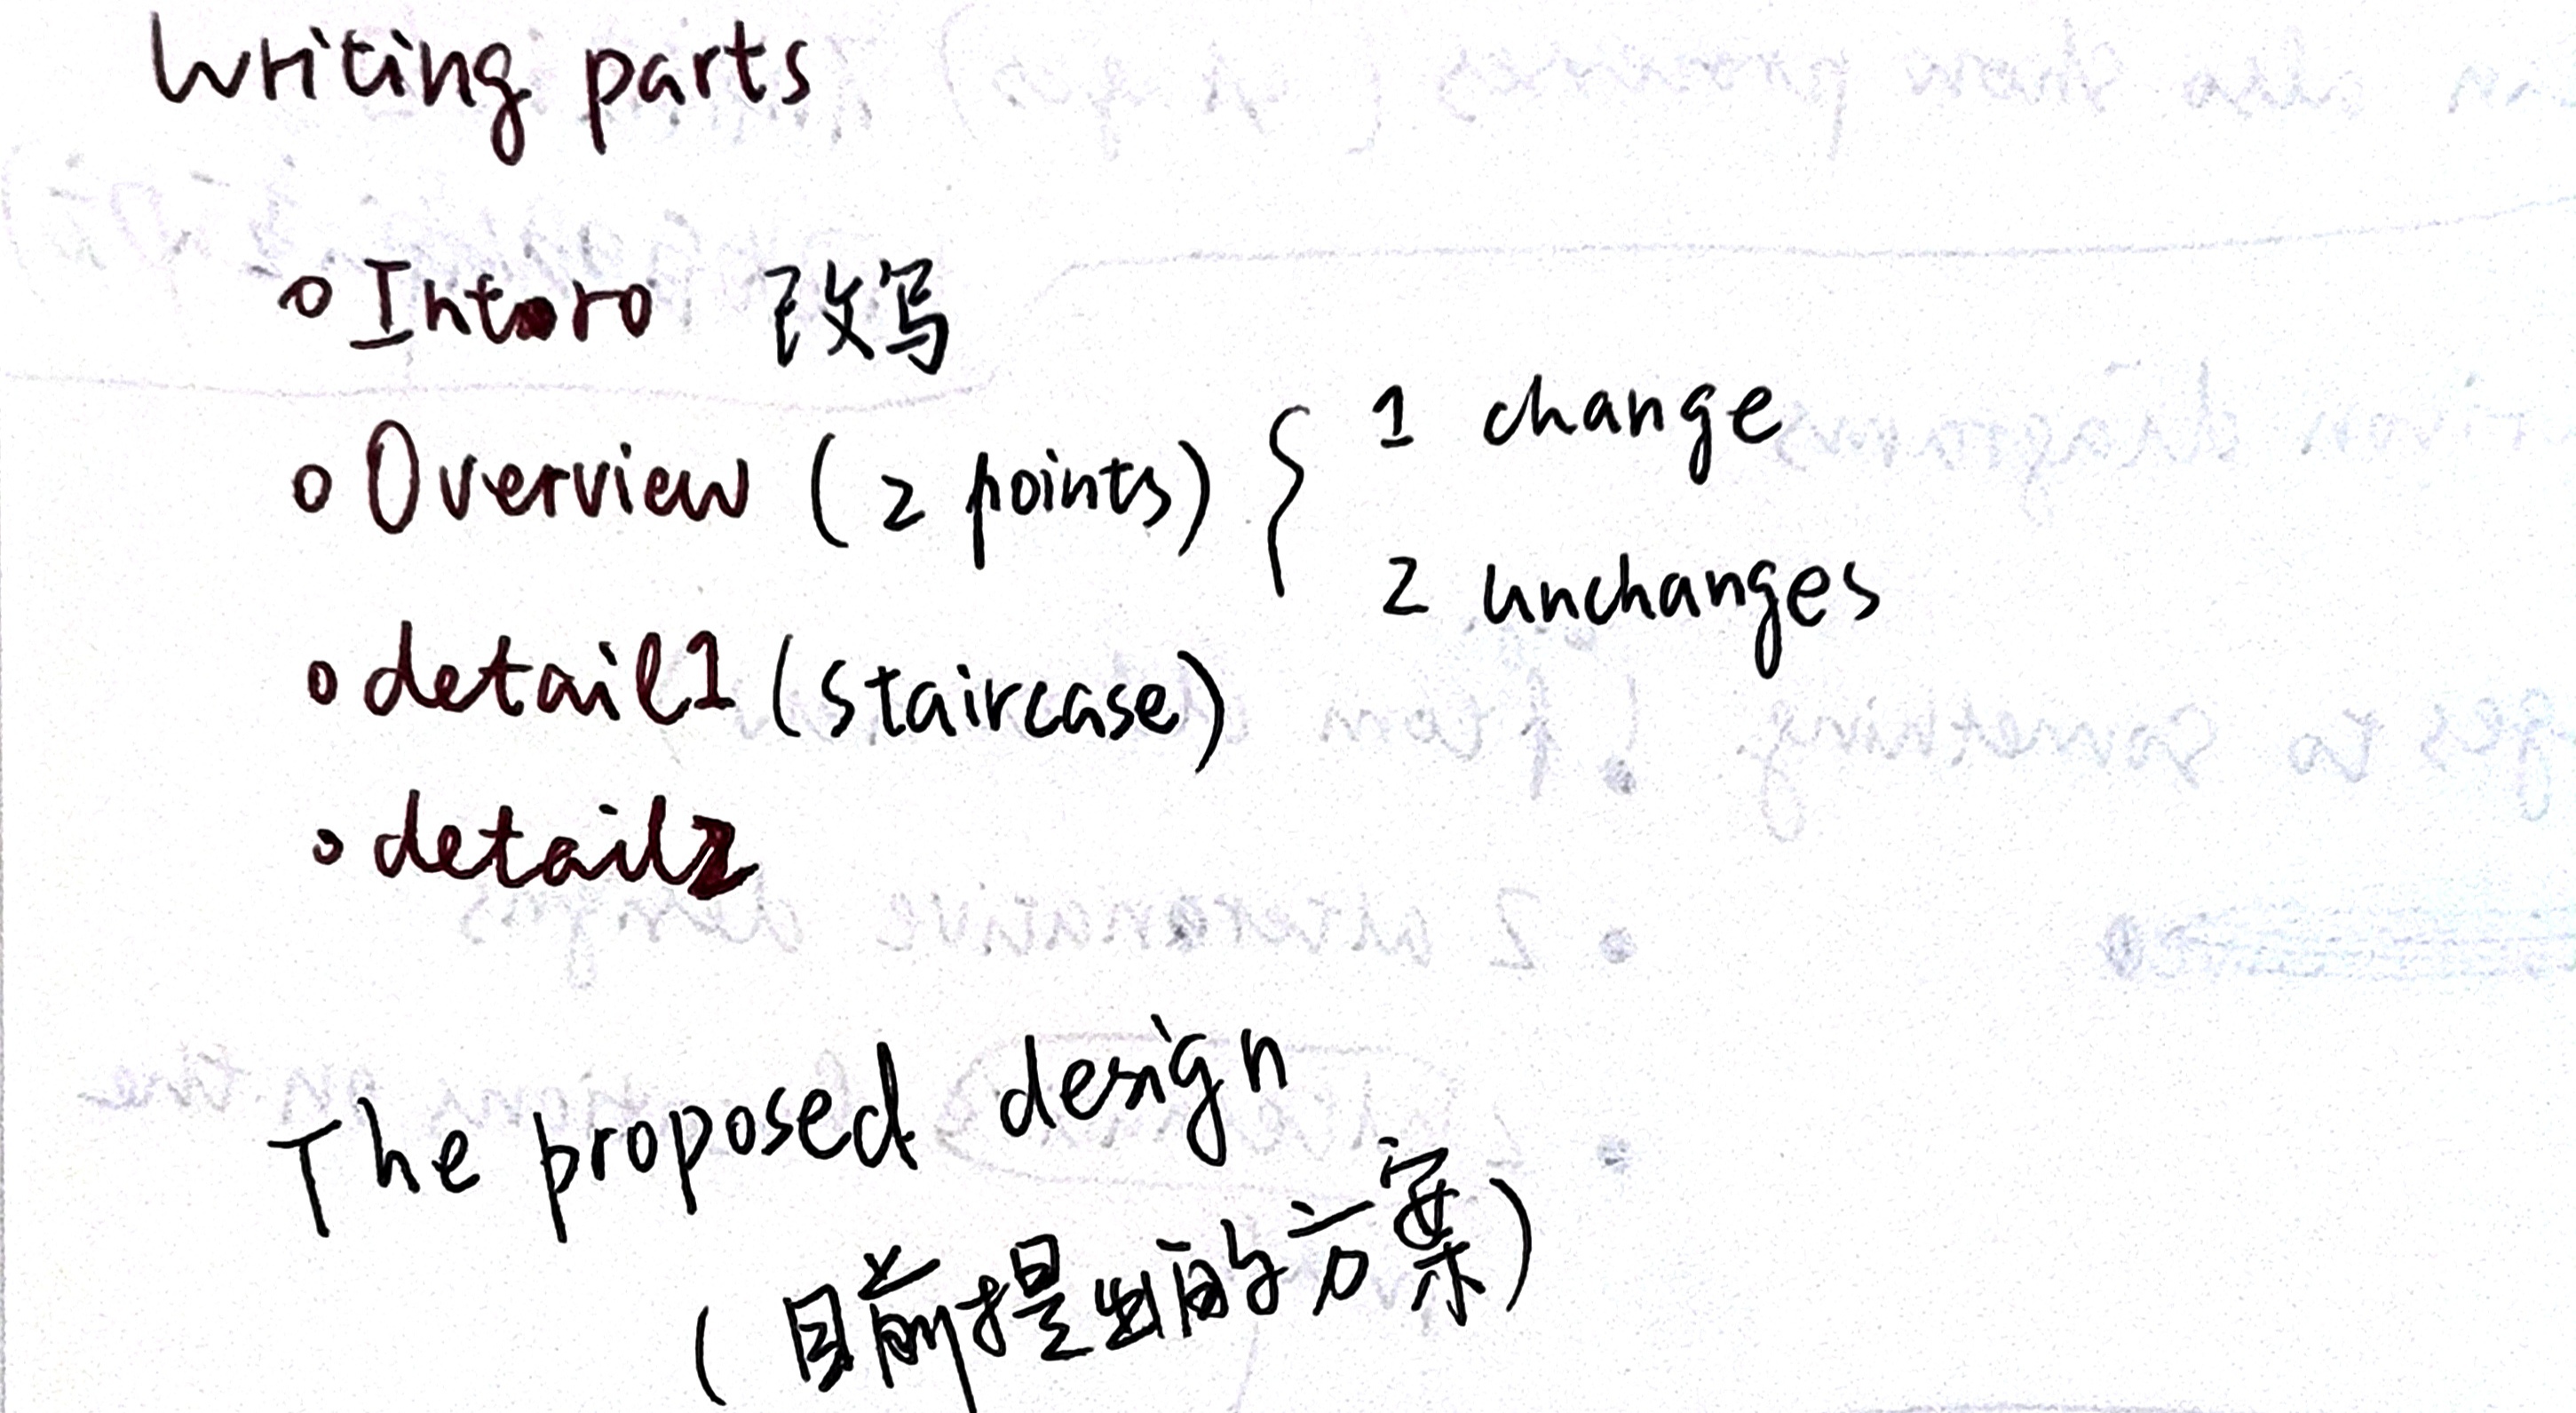 Writing parts
Intro 改写
Overview (2 points) { 1 change
2 unchanges
detail1 (staircase)
detail2
The proposed design
(目前提出的方案)